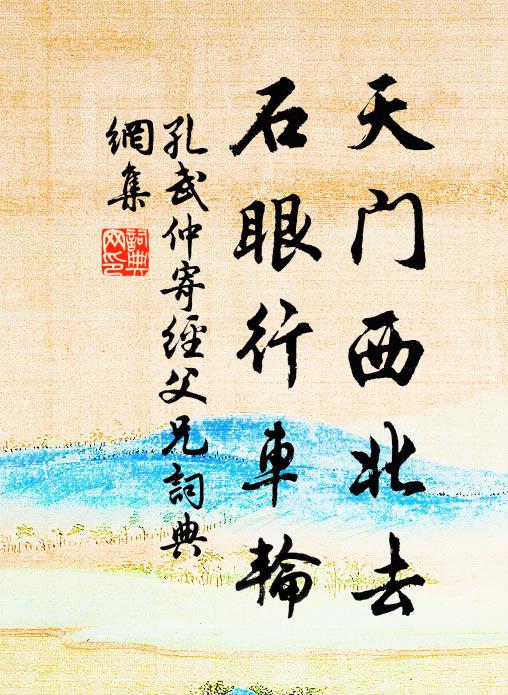 天门西北去
石眼行車輪
孔武仲寄經父兄詞典
網集
詞典
网印